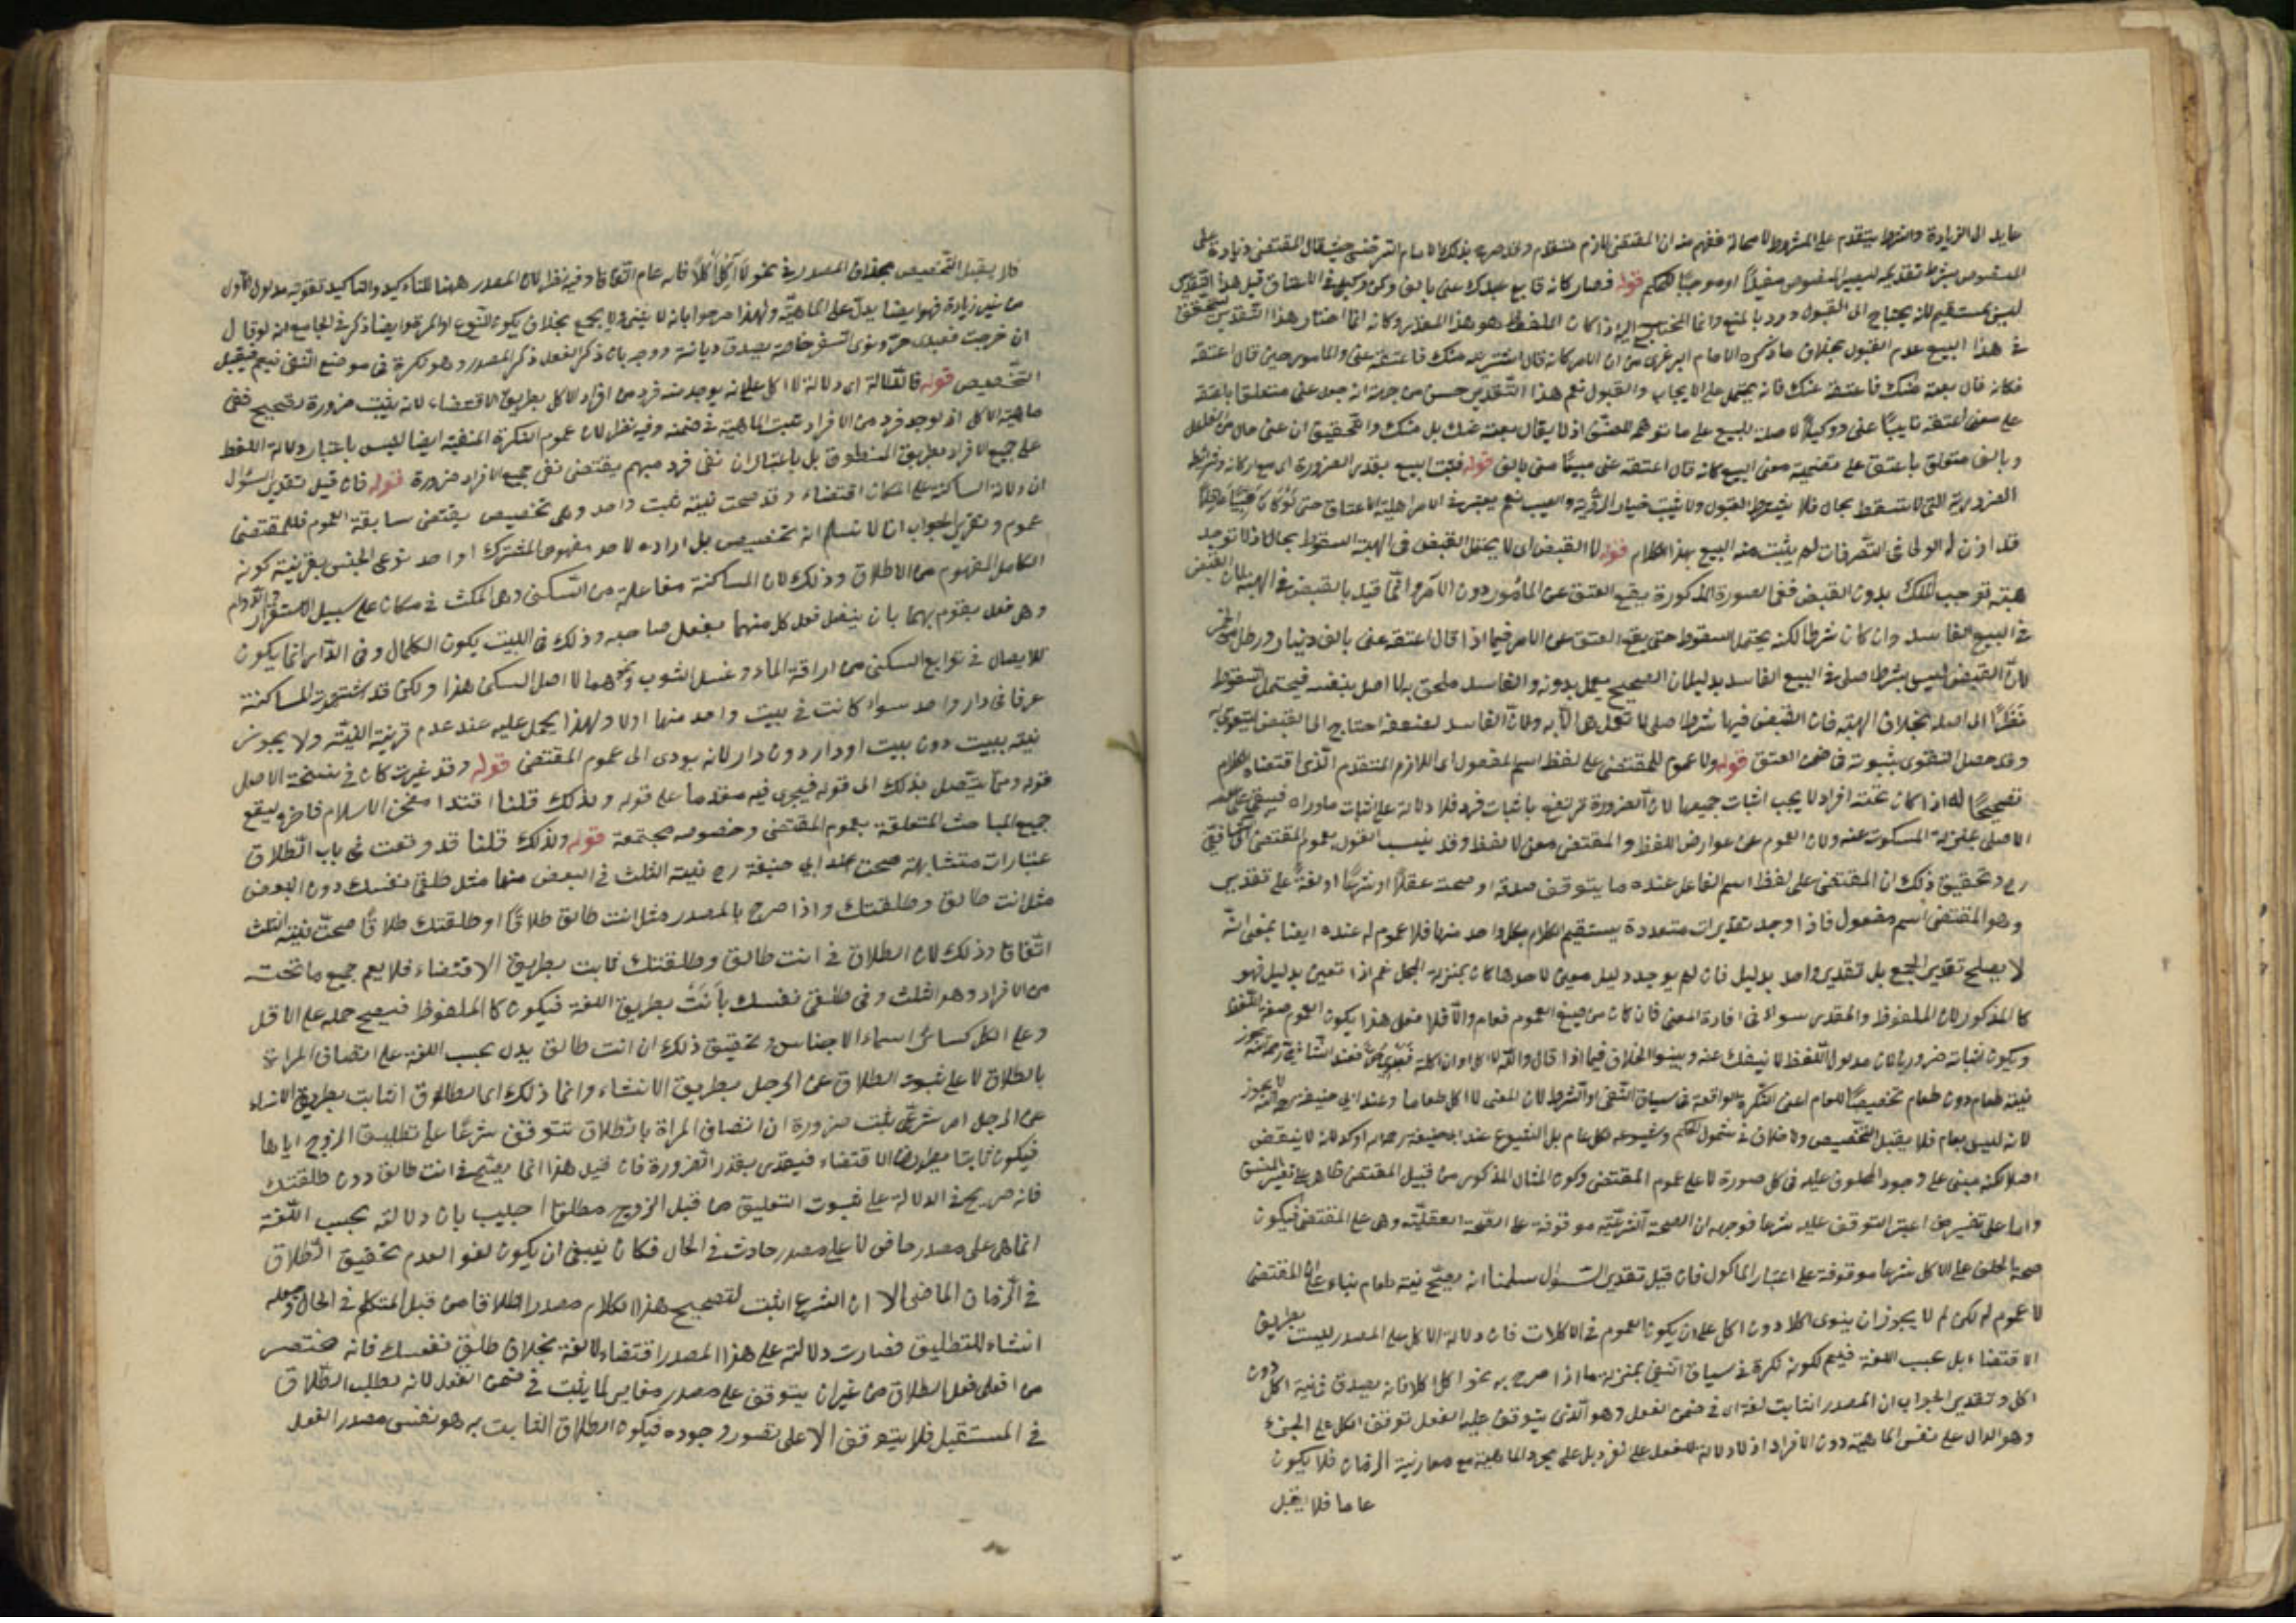 عايد الى الزيادة والشرط يتقدم على المشروط لا محالة ففهم منه ان المقتضى لازم متقدم وقد صرح بذلك الامام السرخسي حيث قال المقتضى زيادة على
المنصوص يشترط تقديمه ليصير المنصوص مفيدًا او موجبًا للحكم قوله فصار كانه قال بع عبدك عنى بالف وكن وكيلى فى الاعتاق قيل هذا التقدير
ليس بمستقيم لانه يحتاج الى القبول ورد بالمنع وانما المحتاج اليه اذا كان الملفوظ هو هذا المقدر وكانه انما اختار هذا التقدير ليتحقق
فى هذا البيع عدم القبول بخلاف ما ذكره الامام البرغرى من ان الامر كانه قال اشتريته منك فاعتقه عنى والمامور حين قال اعتقت
فكانه قال بعته منك فاعتقته عنك فانه يشتمل على الايجاب والقبول نعم هذا التقدير حسن من جهة انه جعل عنى متعلقا باعتقه
على معنى اعتقه نايبًا عنى ووكيلًا لا صلة للبيع على ما توهمه المصنف اذ لا يقال بعته عنك بل منك والتحقيق ان عنى حال من الفاعل
وبالف متعلق باعتق على تضمينه معنى البيع كانه قال اعتقه عنى مبيعًا منى بالف قوله فيثبت البيع بقدر الضرورة اى مع اركانه وشرائطه
الضرورية التى لا تسقط بحال فلا يشترط القبول ولا يثبت خيار الرؤية والعيب نعم يعتبر فى الامر اهلية الاعتاق حتى لو كان صبيًّا عاقلًا
قد اذن له الولى فى التصرفات لم يثبت منه البيع بهذا الكلام قوله لا القبض اى لا يحتمل القبض فى الهبة السقوط بحال اذ لا توجد
هبة توجب الملك بدون القبض ففى الصورة المذكورة يقع العتق عن المأمور دون الآمر وانما قيد بالقبض فى الهبة لان القبض
فى البيع الفاسد وان كان شرطا لكنه يحتمل السقوط حتى يقع العتق عن الامر فيما اذا قال اعتقه عنى بالف دينار ورطل من الخمر
لان القبض ليس بشرط اصلى فى البيع الفاسد بدليل ان الصحيح يعمل بدونه والفاسد ملحق به لا اصل بنفسه فيحتمل السقوط
نظرًا الى اصله بخلاف الهبة فان القبض فيها شرط اصلى لا تعمل هى الا به ولان الفاسد لضعفه احتاج الى القبض ليتقوى به
وقد حصل التقوى بثبوته فى ضمن العتق قوله ولا عموم للمقتضى على لفظ اسم المفعول اى اللازم المتقدم الذى اقتضاه الكلام
تصحيحًا له اذا كان تحته افراد لا يجب اثبات جميعها لان الضرورة ترتفع باثبات فرد فلا دلالة على اثبات ماوراه فيبقى على عدمه
الاصلى بمنزلة المسكوت عنه ولان العموم من عوارض اللفظ والمقتضى معنى لا لفظ وقد ينسب القول بعموم المقتضى الى الشافعى
رح وتحقيق ذلك ان المقتضى على لفظ اسم الفاعل عنده ما يتوقف صدقه او صحته عقلًا او شرعًا او لغةً على تقدير
وهو المقتضى اسم مفعول فاذا وجد تقديرات متعددة يستقيم الكلام بكل واحد منها فلا عموم له عنده ايضا بمعنى انه
لا يصلح تقدير الجميع بل تقدير واحد بدليل فان لم يوجد دليل معين لاحدها كان بمنزلة المجمل ثم اذا تعين بدليل فهو
كالمذكور لان الملفوظ والمقدر سواء فى افادة المعنى فان كان من صيغ العموم فعام والا فلا فعلى هذا يكون العموم صفة اللفظ
ويكون اثباته ضروريا لان مدلول اللفظ لا ينفك عنه وبينوا الخلاف فيما اذا قال والله لا اكل او ان اكلت فعبدى حر فعند الشافعى رحمه الله يجوز
نية طعام دون طعام تخصيصًا للعام اعنى النكرة الواقعة فى سياق النفى او الشرط لان المعنى لا اكل طعاما وعند ابى حنيفة رحمه الله لا يجوز
لانه ليس بعام فلا يقبل التخصيص ولا خلاف فى شمول الحكم وشيوعه لكل طعام بل الشيوع عند ابى حنيفة رحمه الله اوكد لانه لا ينقض
اصلا لكنه مبنى على وجود المحلوف عليه فى كل صورة لا على عموم المقتضى وكون المثال المذكور من قبيل المقتضى ظاهر على تفسير المصنف
واما على تفسير من اعتبر التوقف عليه شرعا فوجهه ان الصحة الشرعية موقوفة على الصحة العقلية وهى على المقتضى فيكون
صحة الحلف على الاكل شرعا موقوفة على اعتبار الماكول فان قيل تقدير السؤال سلمنا انه يصح نية طعام بناء على ان المقتضى
لا عموم له لكن لم لا يجوز ان ينوى اكلا دون اكل على ان يكون العموم فى الاكلات فان دلالة الاكل على المصدر ليست بطريق
الاقتضاء بل بحسب اللغة فيعم لكونه نكرة فى سياق النفى بمنزلة ما اذا صرح به نحو لا اكل اكلا فانه يصدق فى نية اكل دون
اكل وتقدير الجواب ان المصدر الثابت لغة اى فى ضمن الفعل وهو الذى يتوقف عليه الفعل توقف الكل على الجزء
وهو الدال على نفس الماهية دون الافراد اذ لا دلالة للفعل على الفرد بل على مجرد الماهية مع مقارنة الزمان فلا يكون
عاما فلا يقبل
فلا يقبل التخصيص بخلاف المصدر فى نحو لا آكل اكلًا فانه عام اتفاقا وفيه نظر لان المصدر ههنا للتاكيد والتاكيد تقوية مدلول الاول
من غير زيادة فهو ايضا يدل على الماهية ولهذا صرحوا بانه لا يثنى ولا يجمع بخلاف ما يكون للنوع او المرة وايضا ذكر فى الجامع انه لو قال
ان خرجت فعبدى حر ونوى السفر خاصة يصدق ديانة ووجه بان ذكر الفعل ذكر المصدر وهو نكرة فى موضع النفى فيعم فيقبل
التخصيص قوله فالدلالة اى دلالة لا اكل على انه يوجد منه فرد من افراد الاكل بطريق الاقتضاء لانه يثبت ضرورة تصحيح نفى
ماهية الاكل اذ لو وجد فرد من الافراد ثبت الماهية فى ضمنه وفيه نظر لان عموم النكرة المنفية ايضا ليس باعتبار دلالة اللفظ
على جميع الافراد بطريق المنطوق بل باعتبار ان نفى فرد مبهم يقتضى نفى جميع الافراد ضرورة قوله فان قيل تقدير السؤال
ان دلالة المساكنة على المكان اقتضاء وقد صحت نية بيت واحد وهى تخصيص يقتضى سابقة العموم فللمقتضى
عموم وتقرير الجواب انا لا نسلم انه تخصيص بل ارادة لاحد مفهومى المشترك او احد نوعى الجنس بقرينة كونه
الكامل المفهوم من الاطلاق وذلك لان المساكنة مفاعلة من السكنى وهى المكث فى مكان على سبيل الاستقرار والدوام
وهى فعل يقوم بهما بان يتصل فعل كل منهما بفعل صاحبه وذلك فى البيت يكون بالكمال وفى الدار انما يكون
الاتصال فى توابع السكنى من اراقة الماء وغسل الثوب ونحوهما لا اصل السكنى هذا ولكن قد اشتهرت المساكنة
عرفا فى دار واحد سواء كانت فى بيت واحد منها اولا ولهذا يحمل عليه عند عدم قرينة النية ولا يجوز
نية بيت دون بيت او دار دون دار لانه يودى الى عموم المقتضى قوله وقد غيرت كان فى نسخة الاصل
قوله ومما يتصل بذلك الى قوله فيجرى فيه مقدما على قوله ولذلك قلنا اقتدا بفخر الاسلام فاخره ليقع
جميع المباحث المتعلقة بعموم المقتضى وخصوصه مجتمعة قوله ولذلك قلنا قد وقعت فى باب الطلاق
عبارات متشابهة صحت عند ابى حنيفة رح نية الثلث فى البعض منها مثل طلقى نفسك دون البعض
مثل انت طالق وطلقتك واذا صرح بالمصدر مثل انت طالق طلاقًا او طلقتك طلاقًا صحت نية الثلث
اتفاقا وذلك لان الطلاق فى انت طالق وطلقتك ثابت بطريق الاقتضاء فلا يعم جميع ما تحته
من الافراد وهو الثلث وفى طلقى نفسك بائنًا بطريق اللغة فيكون كالملفوظ فيصح حمله على الاقل
وعلى الكل كسائر اسماء الاجناس تحقيق ذلك ان انت طالق يدل بحسب اللغة على اتصاف المراة
بالطلاق لا على ثبوت الطلاق عن الرجل بطريق الانشاء وانما ذلك اى الطلاق الثابت بطريق الانشاء
عن الرجل امر شرعى يثبت ضرورة ان اتصاف المراة بالطلاق تتوقف شرعًا على تطليق الزوج اياها
فيكون ثابتا بطريق الاقتضاء فيقدر بقدر الضرورة فان قيل هذا انما يصح فى انت طالق دون طلقتك
فانه صريح فى الدلالة على ثبوت التطليق من قبل الزوج مطلقا اجيب بان دلالته بحسب اللغة
انما هى على مصدر ماض لا على مصدر حادث فى الحال فكان ينبغى ان يكون لغو العدم تحقيق الطلاق
فى الزمان الماضى الا ان الشرع اثبت لتصحيح هذا الكلام مصدرا طلاقا من قبل المتكلم فى الحال وجعله
انشاء للتطليق فصارت دلالته على هذا المصدر اقتضاء لا لغة بخلاف طلقى نفسك فانه مختصر
من افعلى فعل الطلاق من غير ان يتوقف على مصدر مغاير لما يثبت فى ضمن الفعل لانه يطلب الطلاق
فى المستقبل فلا يتوقف الا على تصور وجوده فيكون الطلاق الثابت به هو نفس مصدر الفعل